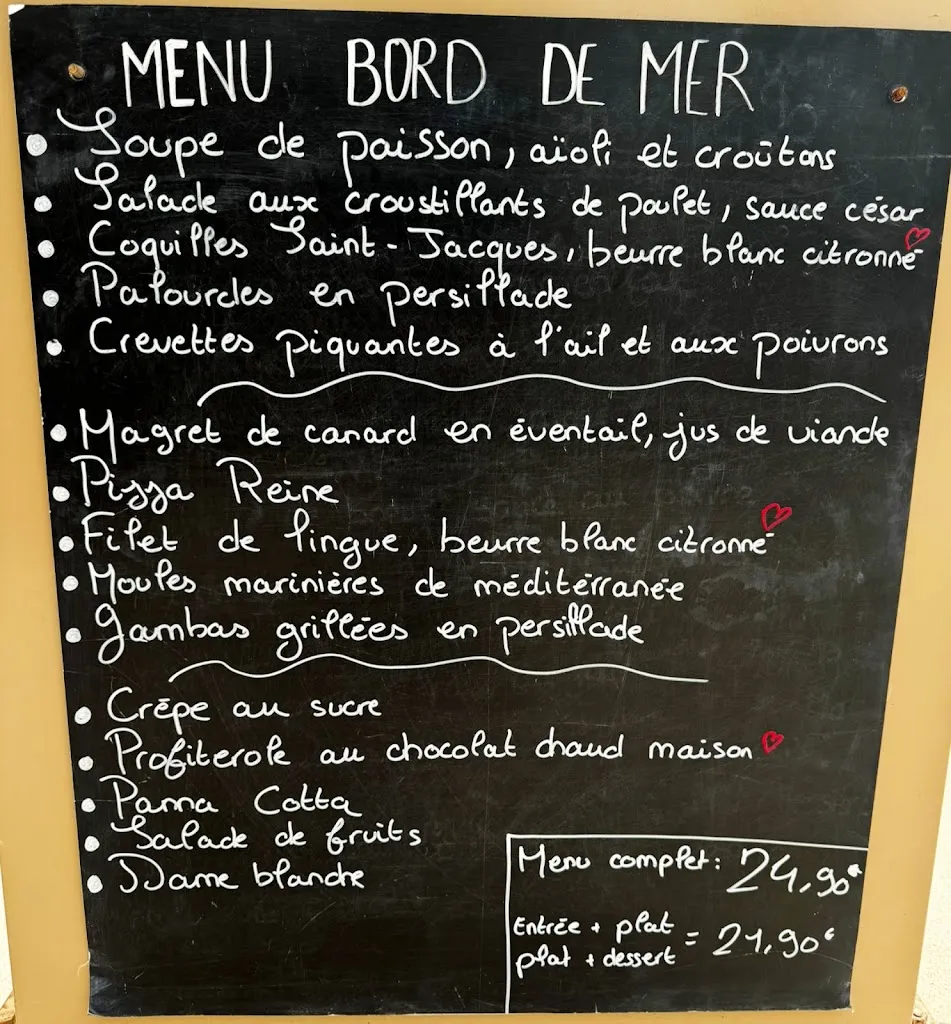 MENU BORD DE MER
• Soupe de poisson, aïoli et croûtons
• Salade aux croustillants de poulet, sauce césar
• Coquilles Saint-Jacques, beurre blanc citronné ♡
• Palourdes en persillade
• Crevettes piquantes à l'ail et aux poivrons
• Magret de canard en éventail, jus de viande
• Pizza Reine
• Filet de lingue, beurre blanc citronné ♡
• Moules marinières de méditérranée
• Gambas grillées en persillade
• Crêpe au sucre
• Profiterole au chocolat chaud maison ♡
• Panna Cotta
• Salade de fruits
• Dame blanche
Menu complet: 24,90€
Entrée + plat
plat + dessert = 21,90€